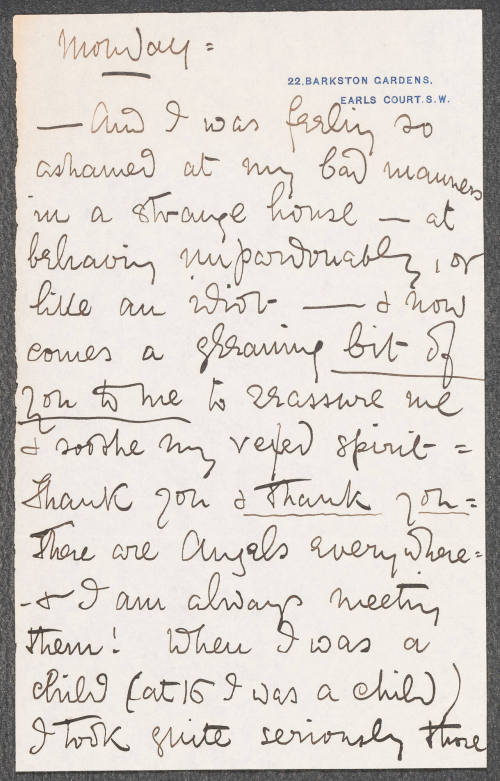 Monday =
22. BARKSTON GARDENS.
EARLS COURT. S.W.
— And I was feeling so
ashamed at my bad manners
in a strange house — at
behaving unpardonably, or
like an idiot — & now
comes a gleaming bit of
you to me to reassure me
& soothe my vexed spirit =
Thank you & thank you =
There are Angels everywhere =
- & I am always meeting
them! When I was a
child (at 16 I was a child)
I took quite seriously those